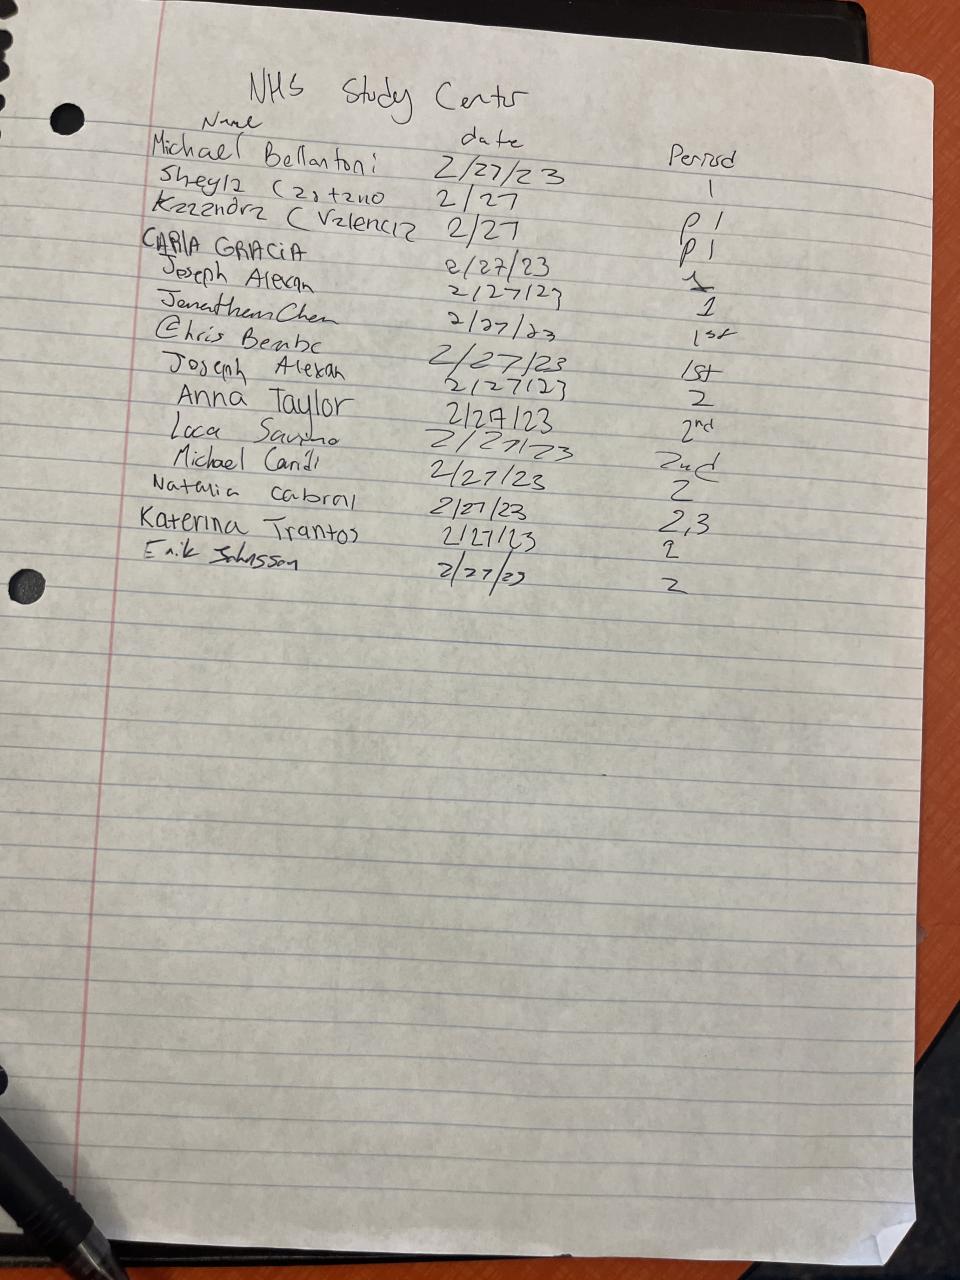 NHS Study Center
Name date Period
Michael Bellantoni 2/27/23 1
Sheyla Castano 2/27 P 1
Kazandra C Valencia 2/27 P 1
CARLA GRACIA 2/27/23 1
Joseph Alexan 2/27/23 1
Jonathan Chen 2/27/23 1st
Chris 2/27/23 1st
Joseph Alexan 2/27/23 2
Anna Taylor 2/27/23 2nd
Luca Savino 2/27/23 2nd
Michael 2/27/23 2
Natalia Cabral 2/27/23 2,3
Katerina Trantos 2/27/23 2
Erik Johnsson 2/27/23 2